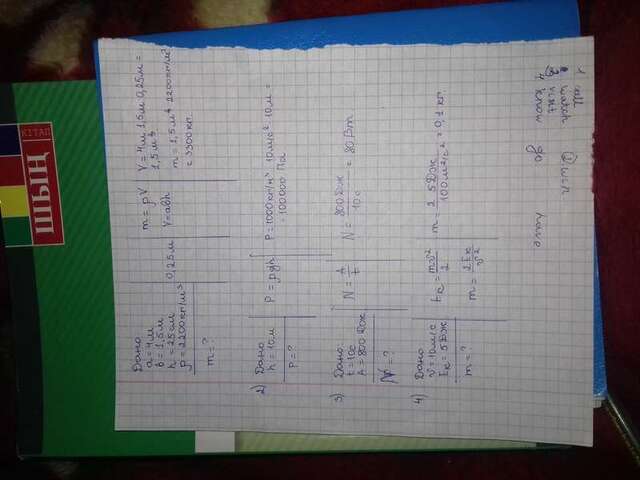 ШЫҢ
КІТАП
Дано
a = 4м
b = 1,5м
h = 25см
ρ = 2200кг/м³
m = ?
0,25м
m = ρV
V = abh
V = 4м 1,5м 0,25м =
1,5м³
m = 1,5м³ 2200кг/м³
= 3300кг.
2) Дано
h = 10м
P = ?
P = ρgh
P = 1000кг/м³ · 10м/с² · 10м =
= 100000 Па
3) Дано:
t = 10с
A = 800 Дж
N = ?
N = A/t
N = 800 Дж/10с = 80 Вт
4) Дано
v = 10м/с
Eк = 5Дж
m = ?
Eк = mv²/2
m = 2Eк/v²
m = 2 5Дж/100м²/с² = 0,1 кг
1 call
watch
visit
4 know
go
have